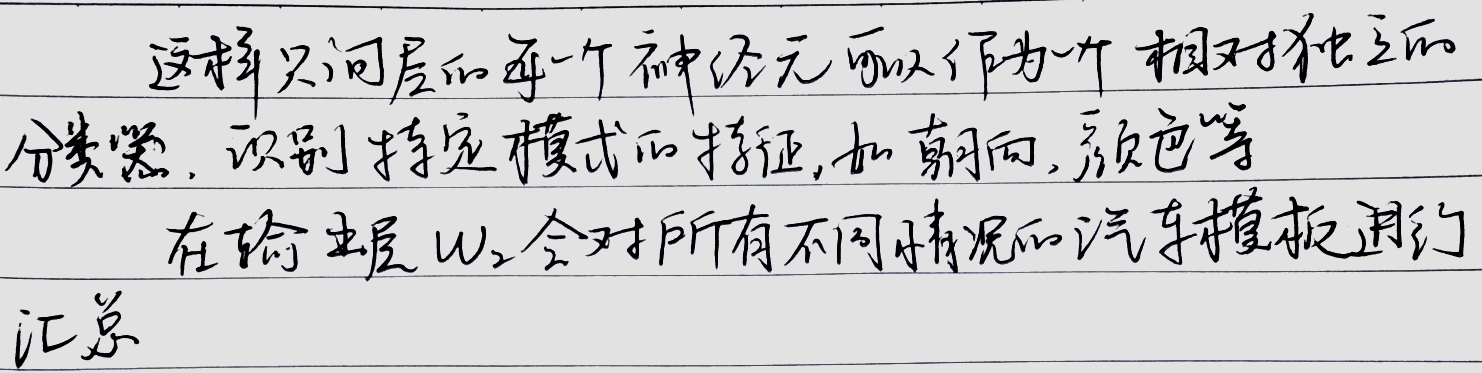 这样只问层的每一个神经元可以作为一个相对独立的
分类器.识别特定模式的特征,如朝向,颜色等
在输出层W₂会对所有不同情况的汽车模板进行
汇总